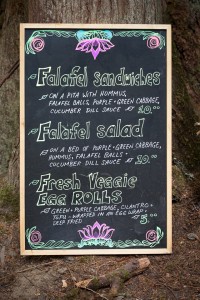 Falafel sandwiches
ON A PITA WITH HUMMUS,
FALAFEL BALLS, PURPLE + GREEN CABBAGE,
CUCUMBER DILL SAUCE AT
Falafel salad
ON A BED OF PURPLE + GREEN CABBAGE,
HUMMUS, FALAFEL BALLS +
CUCUMBER DILL SAUCE AT
Fresh Veggie
EGG ROLLS
GREEN + PURPLE CABBAGE, CILANTRO +
TOFU - WRAPPED IN AN EGG WRAP +
DEEP FRIED